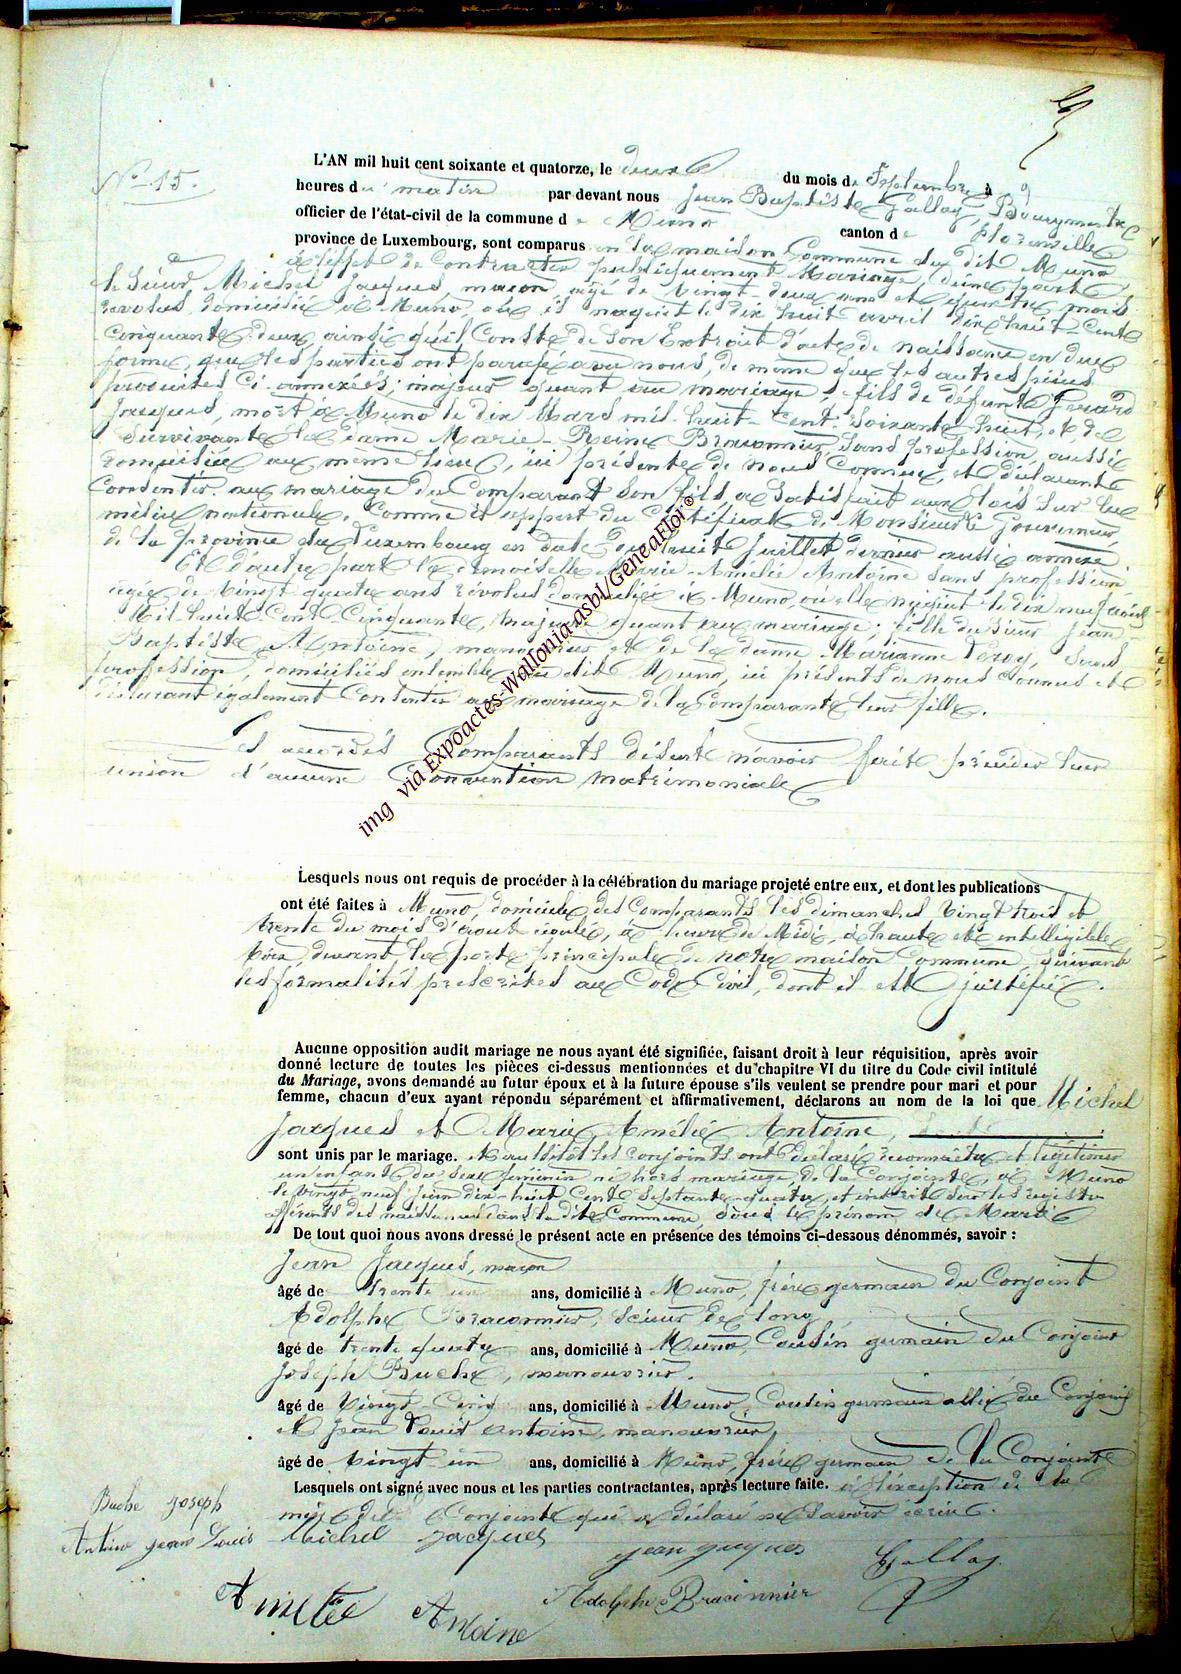 N° 15.
L'AN mil huit cent soixante et quatorze, le deux du mois de Septembre à 9
heures du matin par devant nous Jean Baptiste Gallay, Bourgmestre
officier de l'état-civil de la commune de Muno canton de Florenville
province de Luxembourg, sont comparus en la maison Commune du dit Muno
à l'effet de contracter publiquement Mariage, d'une part,
le Sieur Michel Jacques, maçon, agé de vingt-deux ans et quatre mois
révolus, domicilié à Muno, où il naquit le dix huit avril dix huit Cent
Cinquante deux, ainsi qu'il Conste de Son Extrait d'acte de naissance en due
forme, que les parties ont paraphé avec nous, de même que les autres pièces
produites ci-annexées; majeur quant au mariage; fils de défunt Gérard
Jacques, mort à Muno le dix Mars mil-huit-Cent-Soixante-huit, et de
Survivante la dame Marie-Reine Braconnier, Sans profession, aussi
domiciliée au même lieu, ici présente de nous Connue, et déclarante
Consentir au mariage du Comparant Son fils, a Satisfait aux lois sur la
milice nationale, Comme il appert du Certificat de Monsieur le Gouverneur
de la province de Luxembourg en date du huit Juillet dernier aussi annexé
Et d'autre part la demoiselle Marie-Amélie Antoine Sans profession
agée de vingt quatre ans révolus domiciliée à Muno, où elle naquit le dix neuf août
Mil huit Cent Cinquante, majeure quant au mariage; fille du Sieur Jean-
Baptiste Antoine, manouvrier et de la dame Marianne Peroy, Sans
profession, domiciliés ensemble au dit Muno, ici présents de nous Connus et
déclarant également Consentir au mariage de la Comparante leur fille.
Les Comparants disent n'avoir fait précéder leur
union d'aucune Convention matrimoniale
img via Expoactes-Wallonia-asbl/GeneaFlor©
Lesquels nous ont requis de procéder à la célébration du mariage projeté entre eux, et dont les publications
ont été faites à Muno, domicile des Comparants les dimanches vingt trois et
trente du mois d'août écoulé, à l'heure de Midi, à haute et intelligible
voix, devant la porte principale de notre maison Commune, Suivant
les formalités prescrites au Code Civil, dont il est justifié.
Aucune opposition audit mariage ne nous ayant été signifiée, faisant droit à leur réquisition, après avoir
donné lecture de toutes les pièces ci-dessus mentionnées et du chapitre VI du titre du Code civil intitulé
du Mariage, avons demandé au futur époux et à la future épouse s'ils veulent se prendre pour mari et pour
femme, chacun d'eux ayant répondu séparément et affirmativement, déclarons au nom de la loi que Michel
Jacques et Marie Amélie Antoine,
sont unis par le mariage. Et aussitôt les conjoints ont déclaré reconnaître et légitimer
un enfant du Sexe féminin né hors mariage, de la Conjointe, à Muno
le vingt neuf juin dix-huit Cent Septante-quatre, et inscrit sur les registres
afférents des naissances dans la dite Commune, Sous le prénom de Marie
De tout quoi nous avons dressé le présent acte en présence des témoins ci-dessous dénommés, savoir :
Jean Jacques, maçon
âgé de trente un ans, domicilié à Muno, frère germain du Conjoint
Adolphe Braconnier, Scieur de long,
âgé de trente quatre ans, domicilié à Muno, Cousin germain du Conjoint
Joseph Buche, manouvrier.
âgé de vingt-cinq ans, domicilié à Muno, Cousin germain allié du Conjoint
et Jean Louis Antoine, manouvrier
âgé de vingt un ans, domicilié à Muno, frère germain de la Conjointe
Lesquels ont signé avec nous et les parties contractantes, après lecture faite. à l'exception de la
mère de la Conjointe qui a déclaré ne Savoir écrire.
Buche Joseph
Antoine jean Louis Michel Jacques jean jacques Gallay
Amélie Antoine Adolphe Braconnier